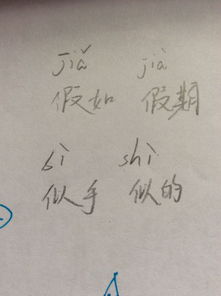 jiǎ jià
假如 假期
sì shì
似乎 似的